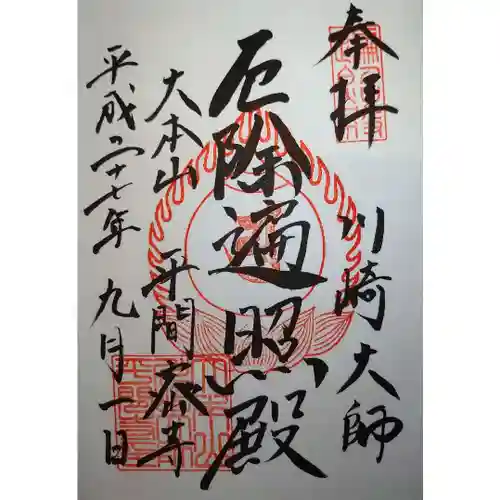 奉拝
川崎大師
厄除遍照殿
大本山
平間寺
平成二十七年
九月一日